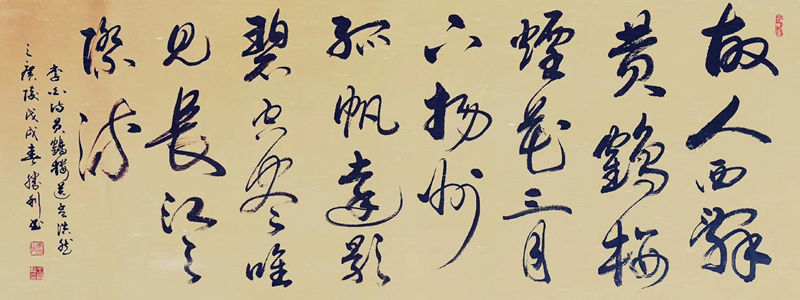 故人西辭
黄鶴楼
煙花三月
下揚州
孤帆遠影
碧空尽唯
見長江天
際流
李白詩黄鶴楼送孟浩然
之廣陵戊戌春勝利書